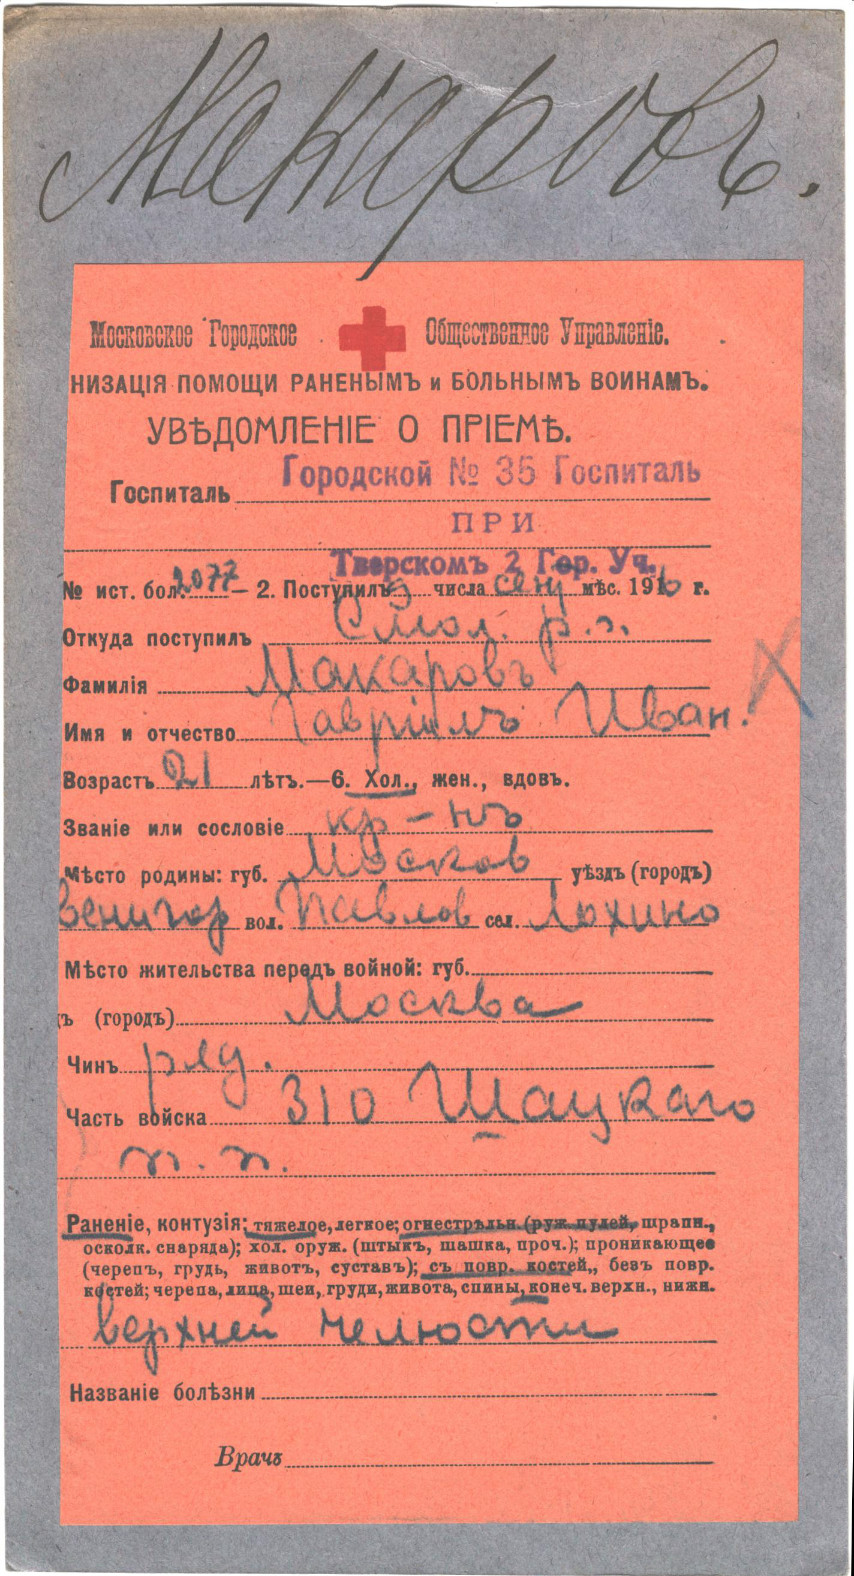 Макаровъ.
Московское Городское Общественное Управленіе.
НИЗАЦІЯ ПОМОЩИ РАНЕНЫМЪ и БОЛЬНЫМЪ ВОИНАМЪ.
УВѢДОМЛЕНІЕ О ПРІЕМѢ.
Госпиталь Городской № 35 Госпиталь
ПРИ
Тверскомъ 2 Гор. Уч.
№ ист. бол. 2077 — 2. Поступилъ 9 числа сен мѣс. 1916 г.
Откуда поступилъ Смол. р.п.
Фамилія Макаровъ
Имя и отчество Гавріилъ Иван.
Возрастъ 21 лѣтъ.—6. Хол., жен., вдов.
Званіе или сословіе кр-нъ
Мѣсто родины: губ. Москов уѣздъ (городъ)
венигор вол. Павлов сел. Лохино
Мѣсто жительства передъ войной: губ.
ъ (городъ) Москва
Чинъ ряд.
Часть войска 310 Шацкаго
п. п.
Раненіе, контузія: тяжелое, легкое; огнестрѣльн. (руж. пулей, шрапн.,
осколк. снаряда); хол. оруж. (штыкъ, шашка, проч.); проникающее
(черепъ, грудь, животъ, суставъ); съ повр. костей,, безъ повр.
костей; черепа, лица, шеи, груди, живота, спины, конеч. верхн., нижн.
верхней челюсти
Названіе болѣзни
Врачъ